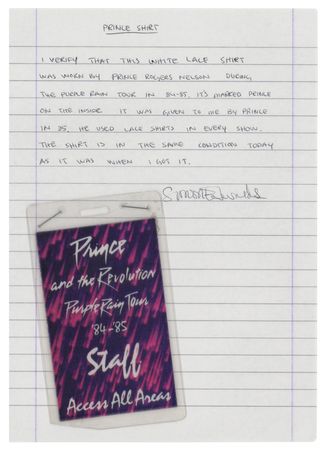 PRINCE SHIRT
I VERIFY THAT THIS WHITE LACE SHIRT
WAS WORN BY PRINCE ROGERS NELSON DURING
THE PURPLE RAIN TOUR IN 84-85. IT'S MARKED PRINCE
ON THE INSIDE. IT WAS GIVEN TO ME BY PRINCE
IN 85. HE USED LACE SHIRTS IN EVERY SHOW.
THE SHIRT IS IN THE SAME CONDITION TODAY
AS IT WAS WHEN I GOT IT.
Prince
and the Revolution
Purple Rain Tour
'84-'85
Staff
Access All Areas